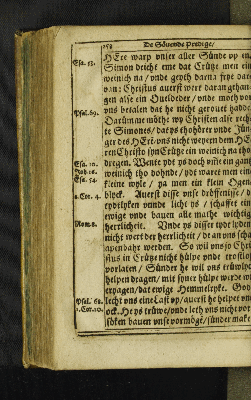 258
De Sövende Predige/
HEre warp vnser aller Sünde vp en
Esa. 53.
Simon drecht eme dat Crütze men ein
weinich na/ vnde geyth darna frye dar
van: Christus auerst wert daran gehan
gen alse ein Ouelbeder/ vnde moth vor
Psal. 69.
vns betalen dat he nicht gerouet hadde.
Darümme möthe wy Christen alse rech
te Simones/ dat ys thohörer vnde Jün
ger des HEren vns nicht wegern dem HE
ren Christo syn Crütze ein weinich na tho
Esa. 10.
dregen. Wente ydt ys doch vmme ein gantz
Esa. 54.
weinich tho dohnde/ ydt waret men eine
kleine wyle/ ya men ein klein Ogen
2. Cor. 4.
blyck. Auerst disse vnse dröffenisse/ de
tydtlyken vnde licht ys/ schaffet ein
ewige vnde bauen alle mathe wichtige
Rom. 8.
herrlicheit. Vnde ys disser tydt lyden
nicht wert der herrlicheit/ de an vns schal
apenbahr werden. So wil vns jo Chri
stus in Crütze nicht hülpe vnde trostlos
vorlaten/ Sünder he wil ens trüwlyck
helpen dragen/ mit syner hülpe werde wy
erjagen/ dat ewige Hemmelryke. Godt
Psal. 68.
lecht vns eine Last vp/ auerst he helpet vns
1. Cor. 10.
ock. He ys trüwe/ vnde leth vns nicht vor
söken bauen vnse vormöge/ sünder maket